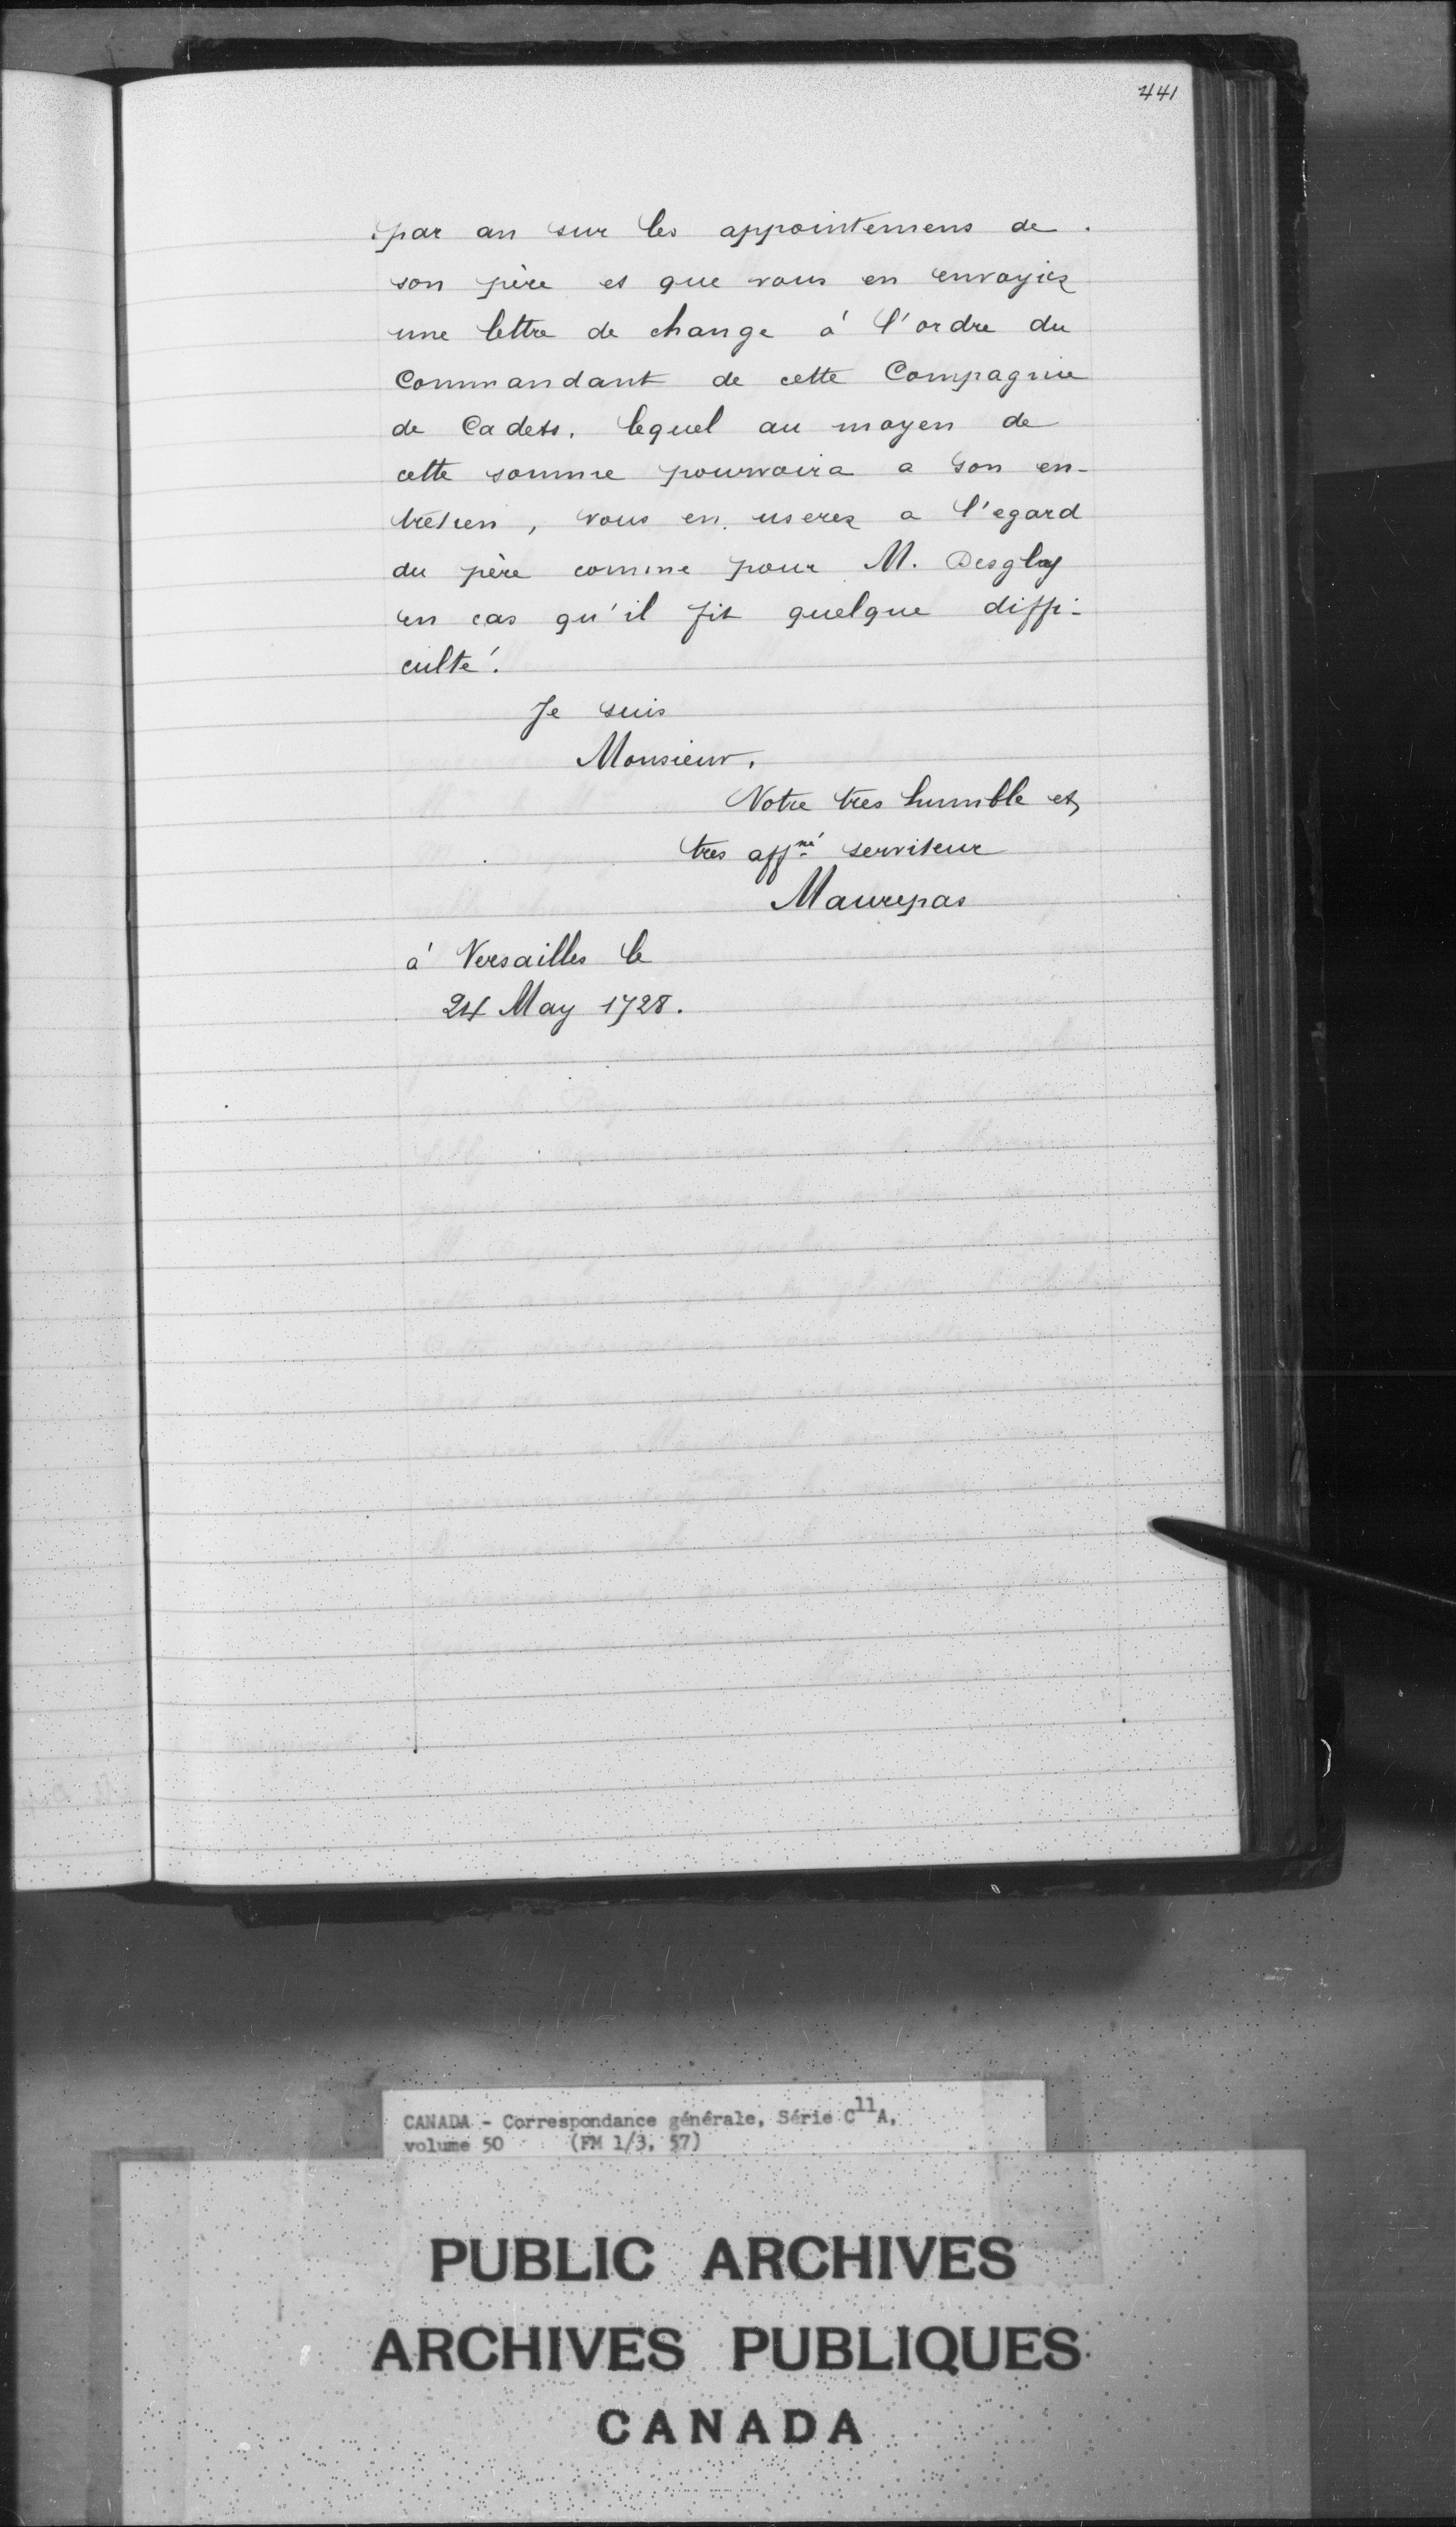 441
par an sur les appointemens de
son père et que vous en envoyiez
une lettre de change à l'ordre du
Commandant de cette Compagnie
de Cadets, lequel au moyen de
cette somme pourvoira a son en-
tretien, vous en userez a l'egard
du père comme pour M. Desgly
en cas qu'il fit quelque diffi-
culté.
Je suis
Monsieur,
Votre tres humble et
tres affné serviteur
Maurepas
à Versailles le
24 May 1728.
CANADA - Correspondance générale, Série C11A,
volume 50 (FM 1/3, 57)
PUBLIC ARCHIVES
ARCHIVES PUBLIQUES
CANADA